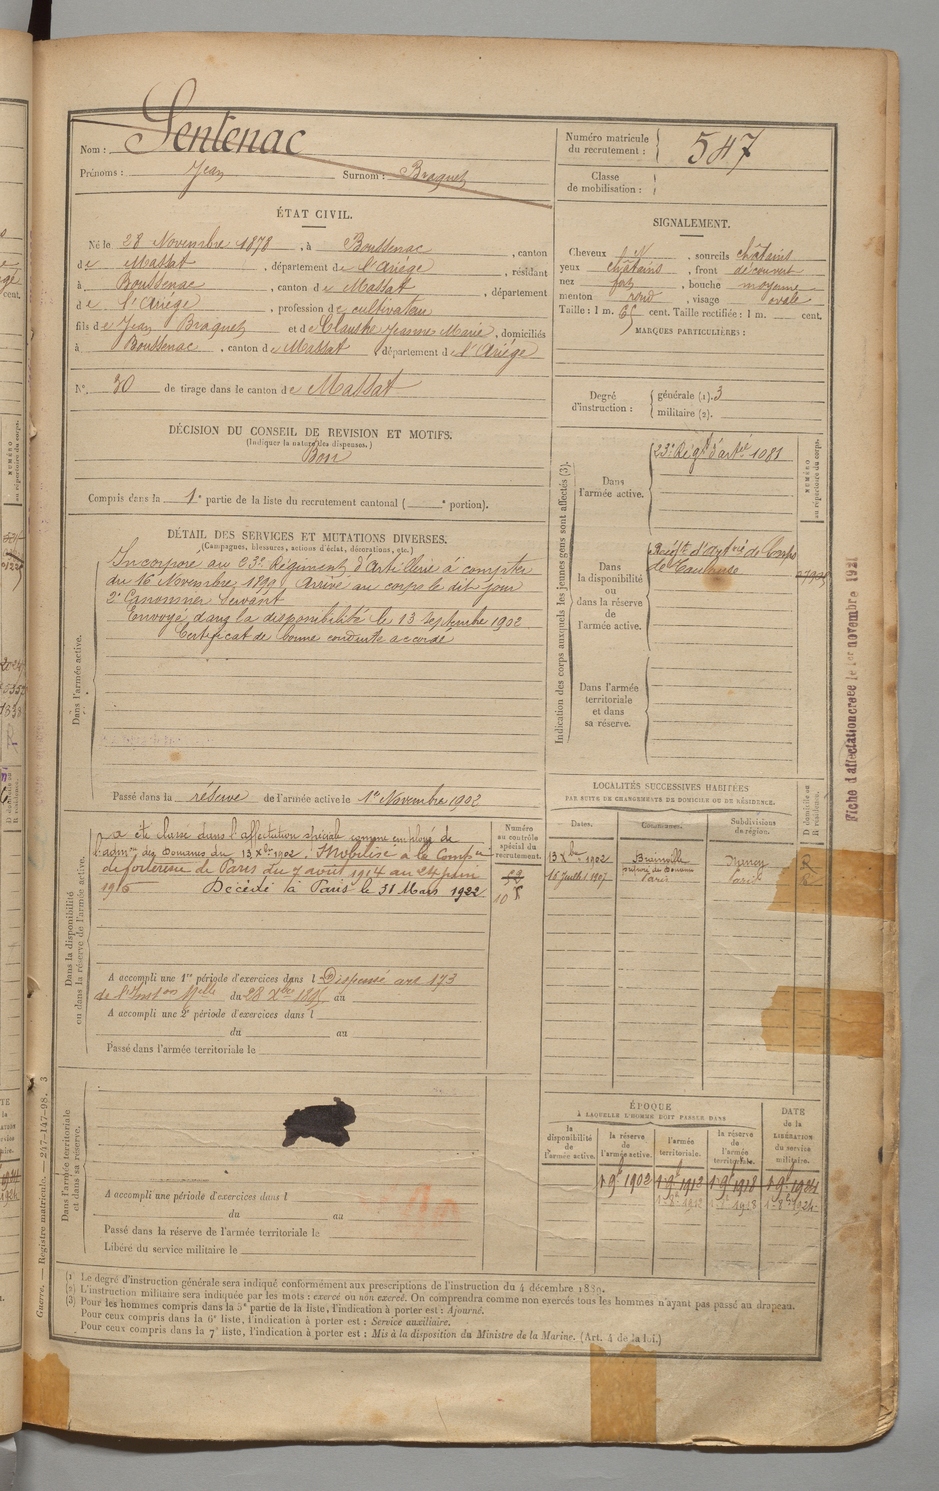 Nom : Sentenac
Prénoms : Jean Surnom : Braquet
Numéro matricule du recrutement : 547
Classe de mobilisation :
ÉTAT CIVIL.
Né le 28 Novembre 1878, à Boussenac, canton
de Massat, département de l'Ariége, résidant
à Boussenac, canton de Massat, département
de l'Ariège, profession de cultivateur
fils de Jean Braquet et de Jeanne Marie, domiciliés
à Boussenac, canton de Massat département de l'Ariége
N° 30 de tirage dans le canton de Massat
SIGNALEMENT.
Cheveux N, sourcils châtains
yeux châtains, front découvert
nez fort, bouche moyenne
menton rond, visage ovale
Taille : 1 m. 65 cent. Taille rectifiée : 1 m. cent.
MARQUES PARTICULIÈRES :
Degré d'instruction : générale (1). 3
militaire (2).
DÉCISION DU CONSEIL DE REVISION ET MOTIFS.
(Indiquer la nature des dispenses.)
Bon
Compris dans la 1e partie de la liste du recrutement cantonal ( e portion).
DÉTAIL DES SERVICES ET MUTATIONS DIVERSES.
(Campagnes, blessures, actions d'éclat, décorations, etc.)
Dans l'armée active.
Incorporé au 23e Régiment d'Artillerie à compter
du 16 Novembre 1899 Arrivé au corps le dit jour
2e Canonnier Servant
Envoyé dans la disponibilité le 13 Septembre 1902
Certificat de bonne conduite accordé
Passé dans la réserve de l'armée active le 1er Novembre 1902
Indication des corps auxquels les jeunes gens sont affectés (3).
Dans l'armée active.
23e Régt d'artie 1081
NUMÉRO au répertoire du corps.
Dans la disponibilité ou dans la réserve de l'armée active.
Régt d'artie de Corps
de Toulouse
Dans l'armée territoriale et dans sa réserve.
Fiche d'affectation créée le 1er novembre 1921
Dans la disponibilité ou dans la réserve de l'armée active.
a été classé dans l'affectation spéciale comme employé de
l'admon des Douanes du 13 Xbre 1902. Mobilisé à la Compie
de forteresse de Paris du 7 août 1914 au 24 juin
1916 Décédé à Paris le 31 Mars 1922
Numéro au contrôle spécial du recrutement.
A accompli une 1re période d'exercices dans l Dispensé art 173
de l'Inston Mlle du 28 Xbre 1895 au
A accompli une 2e période d'exercices dans l
du au
Passé dans l'armée territoriale le
LOCALITÉS SUCCESSIVES HABITÉES
PAR SUITE DE CHANGEMENTS DE DOMICILE OU DE RÉSIDENCE.
Dates. Communes. Subdivisions de région. D domicile ou R résidence.
13 Xbre 1902 Brainville Nancy R
préposé des Douanes
16 Juillet 1907 Paris Paris
Dans l'armée territoriale et dans sa réserve.
A accompli une période d'exercices dans l
du au
Passé dans la réserve de l'armée territoriale le
Libéré du service militaire le
ÉPOQUE
À LAQUELLE L'HOMME DOIT PASSER DANS
la disponibilité de l'armée active.
la réserve de l'armée active.
l'armée territoriale.
la réserve de l'armée territoriale.
DATE de la LIBÉRATION du service militaire.
1 9b 1902 1 9b 1912 1 9b 1918 1 9b 1924
1-8b 1912 1-8b 1918 1-8b 1924
Guerre. — Registre matricule. — 247-147-98. 3
(1) Le degré d'instruction générale sera indiqué conformément aux prescriptions de l'instruction du 4 décembre 1889.
(2) L'instruction militaire sera indiquée par les mots : exercé ou non exercé. On comprendra comme non exercés tous les hommes n'ayant pas passé au drapeau.
(3) Pour les hommes compris dans la 5e partie de la liste, l'indication à porter est : Ajourné.
Pour ceux compris dans la 6e liste, l'indication à porter est : Service auxiliaire.
Pour ceux compris dans la 7e liste, l'indication à porter est : Mis à la disposition du Ministre de la Marine. (Art. 4 de la loi.)